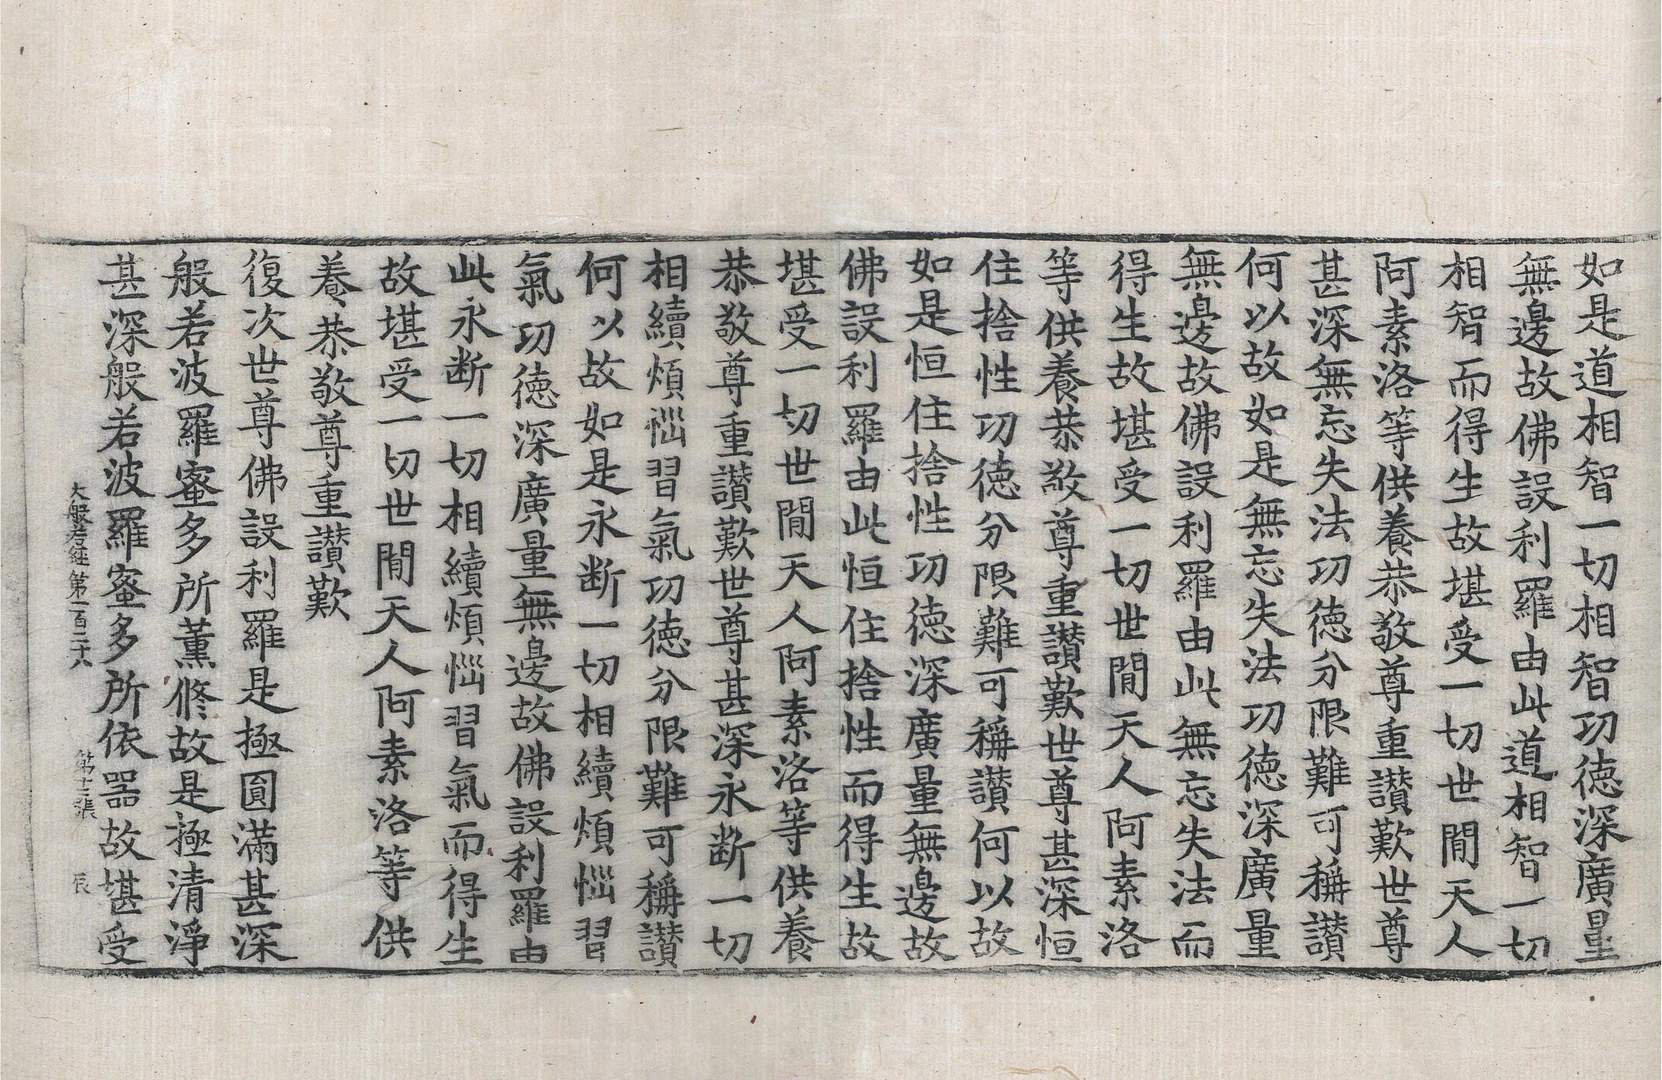 如是道相智一切相智功德深廣量
無邊故佛設利羅由此道相智一切
相智而得生故堪受一切世間天人
阿素洛等供養恭敬尊重讃歎世尊
甚深無忘失法功德分限難可稱讃
何以故如是無忘失法功德深廣量
無邊故佛設利羅由此無忘失法而
得生故堪受一切世間天人阿素洛
等供養恭敬尊重讃歎世尊甚深恒
住捨性功德分限難可稱讃何以故
如是恒住捨性功德深廣量無邊故
佛設利羅由此恒住捨性而得生故
堪受一切世間天人阿素洛等供養
恭敬尊重讃歎世尊甚深永断一切
相續煩惱習氣功德分限難可稱讃
何以故如是永断一切相續煩惱習
氣功德深廣量無邊故佛設利羅由
此永断一切相續煩惱習氣而得生
故堪受一切世間天人阿素洛等供
養恭敬尊重讃歎
復次世尊佛設利羅是極圓滿甚深
般若波羅蜜多所薰修故是極清淨
甚深般若波羅蜜多所依器故堪受
大般若經第一百二十八 第十二張 辰